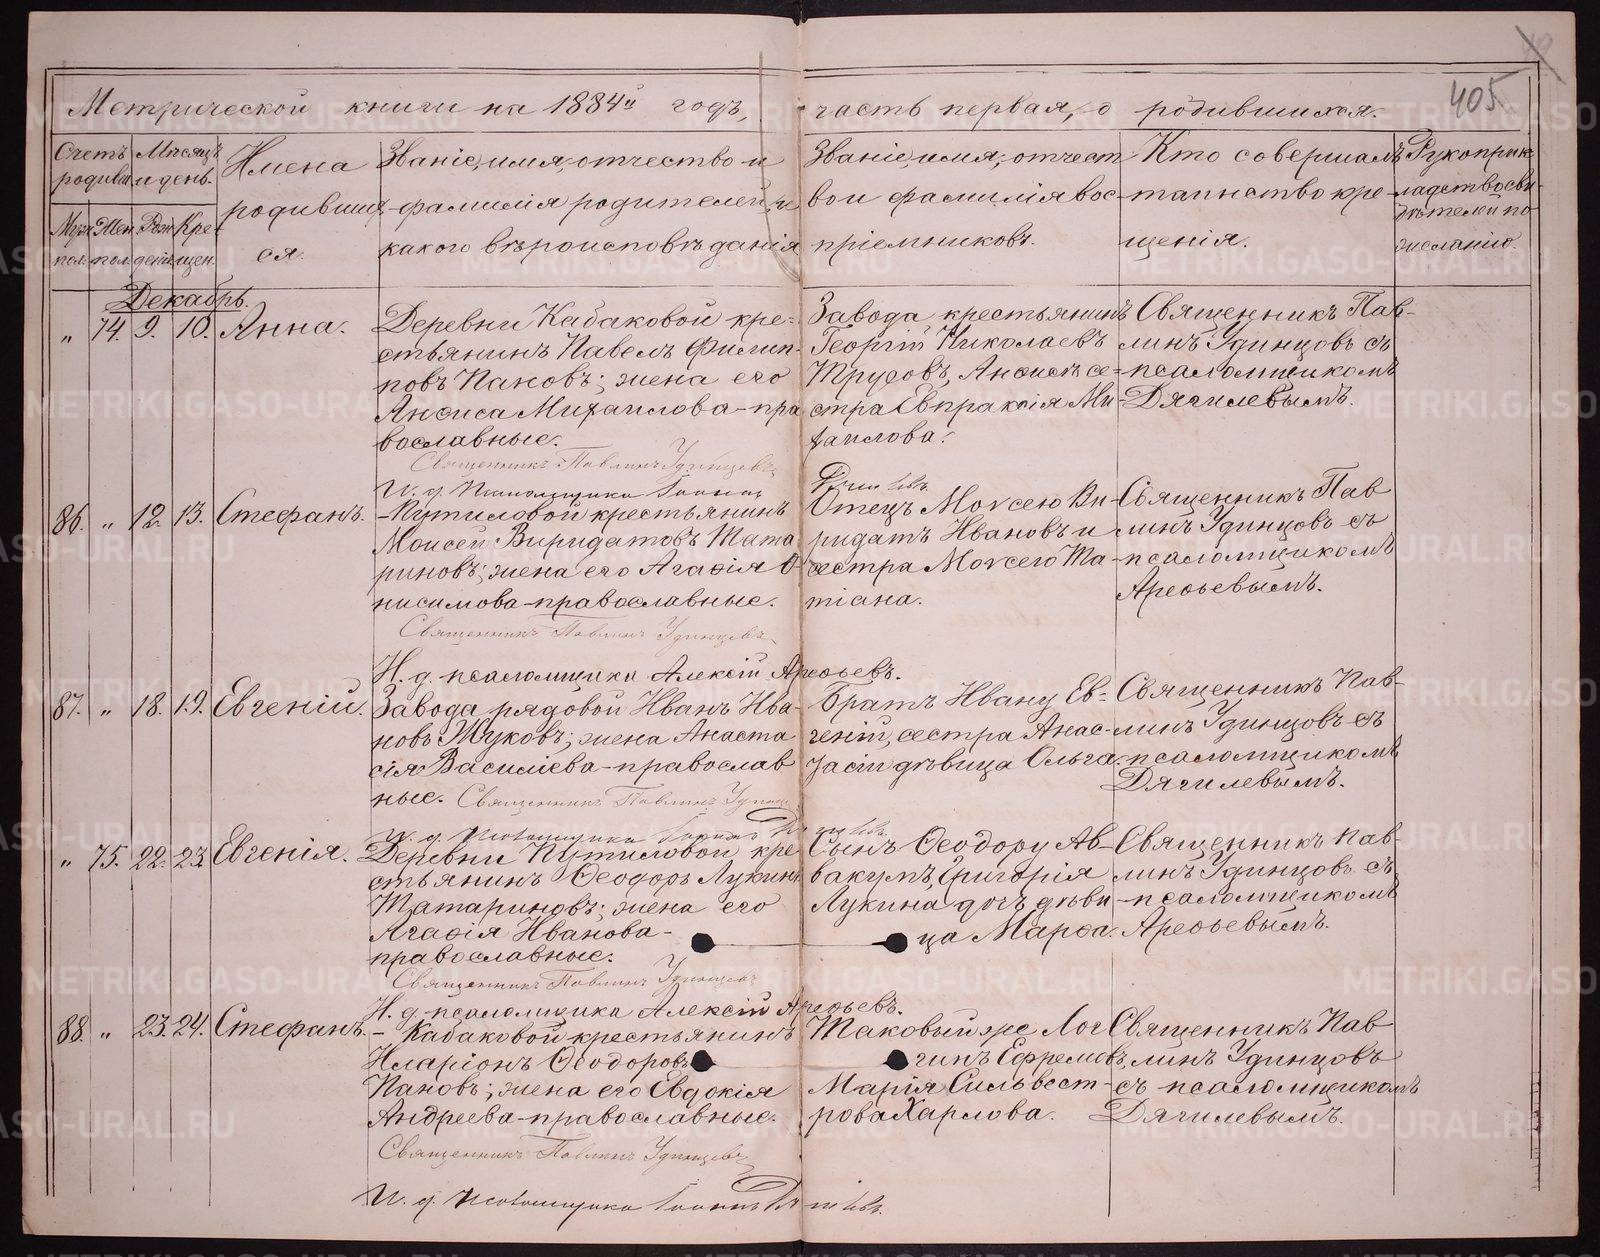 405
Метрической книги на 1884й годъ, часть первая, о родившихся.
Счетъ родивш.
Мѣсяцъ и день.
Муж. пол.
Жен. пол.
Рож денія
Кре- щен.
Имена
родивших
ся.
Званіе, имя, отчество и
фамилія родителей, и
какого вѣроисповѣданія
Званіе, имя, отчест
во и фамилія вос-
пріемниковъ.
Кто совершалъ
таинство кре-
щенія.
Рукоприк
ладство сви-
дѣтелей по
желанію.
Декабрь.
„ 74. 9. 10. Анна.
Деревни Кабаковой кре-
стьянинъ Павелъ Филип-
повъ Пановъ; жена его
Анѳиса Михаилова - пра
вославные.
Священникъ Павлинъ Удинцевъ
И. д. Псаломщика Іоаннъ
Завода крестьянинъ
Георгій Николаевъ
Трусовъ, Анѳисѣ се-
стра Евпраксія Ми-
хаилова.
Священникъ Пав-
линъ Удинцовъ съ
псаломщикомъ
Дягилевымъ.
86. „ 12. 13. Стефанъ.
- Путиловой крестьянинъ
Моисей Виридатовъ Тата
риновъ; жена его Агаѳія О-
нисимова - православные.
Священникъ Павлинъ Удинцевъ
И. д. псаломщика Алексій Арефьевъ.
Отецъ Моѵсею Ви-
ридатъ Ивановъ и
сестра Моѵсею Та-
тіана.
Священникъ Пав
линъ Удинцовъ съ
псаломщикомъ
Арефьевымъ.
87. „ 18. 19. Евгеній.
Завода рядовой Иванъ Ива-
новъ Жуковъ; жена Анаста
сія Василіева - православ
ные. Священникъ Павлинъ Удинц
И. д. Псаломщика Іоаннъ
Братъ Ивану Ев-
геній, сестра Анас-
тасіи дѣвица Ольга.
Священникъ Пав-
линъ Удинцовъ съ
псаломщикомъ
Дягилевымъ.
„ 75. 22. 23. Евгенія.
Деревни Путиловой кре
стьянинъ Ѳеодоръ Лукинъ
Татариновъ; жена его
Агаѳія Иванова -
православные.
Священникъ Павлинъ Удинцевъ
И. д. псаломщика Алексій Арефьевъ.
Сынъ Ѳеодору Ав-
вакумъ, Григорія
Лукина дочь дѣви
ца Марѳа.
Священникъ Пав-
линъ Удинцовъ съ
псаломщикомъ
Арефьевымъ.
88. „ 23. 24. Стефанъ.
- Кабаковой крестьянинъ
Иларіонъ Ѳеодоровъ
Пановъ; жена его Евдокія
Андреева - православные.
Священникъ Павлинъ Удинцевъ
И. д. Псаломщика Іоаннъ
Таковый же Лог
гинъ Ефремовъ,
Марія Сильвест-
рова Харлова.
Священникъ Пав
линъ Удинцовъ
съ псаломщикомъ
Дягилевымъ.
METRIKI.GASO-URAL.RU